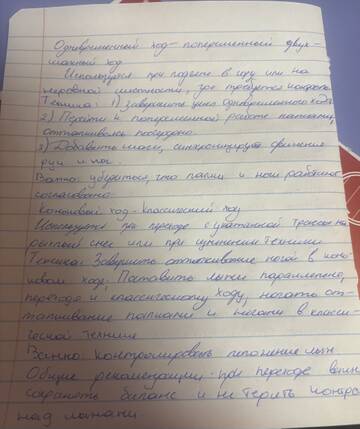 Одновременный ход – попеременный двух-
шажный ход
Используется при подъеме в гору или на
неровной местности, где требуется
Техника: 1) Завершить цикл одновременного хода
2) Перейти к попеременной работе палками,
отталкиваясь поочередно.
3) Добавить синхронизируя движения
рук и ног.
Важно: убедиться, что палки и ноги работают
согласованно.
Коньковый ход – классический ход
Используется при переходе с укатанной трассы на
рыхлый снег или при изменении техники
Техника: Завершить отталкивание ногой в конь-
ковом ход. Поставить лыжи параллельно,
переходя к классическому ходу, начать от-
талкивание палками и ногами в класси-
ческой технике
Важно контролировать положение лыж
Общие рекомендации: при переходе важно
сохранять баланс и не терять контроль
над лыжами